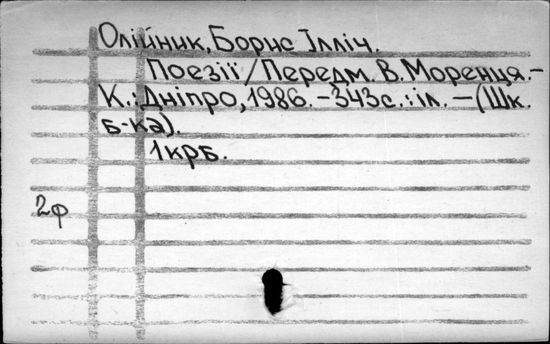 Олійник, Борис Ілліч.
Поезії / Передм. В. Моренця. –
К. : Дніпро, 1986. – 343с. : іл. – (Шк.
б-ка).
1крб.
2ф